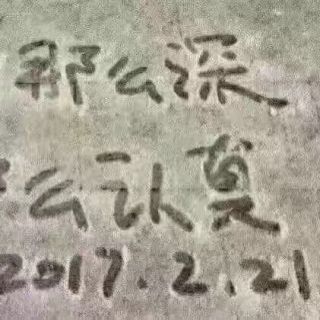 那么深
么认真
2017.2.21